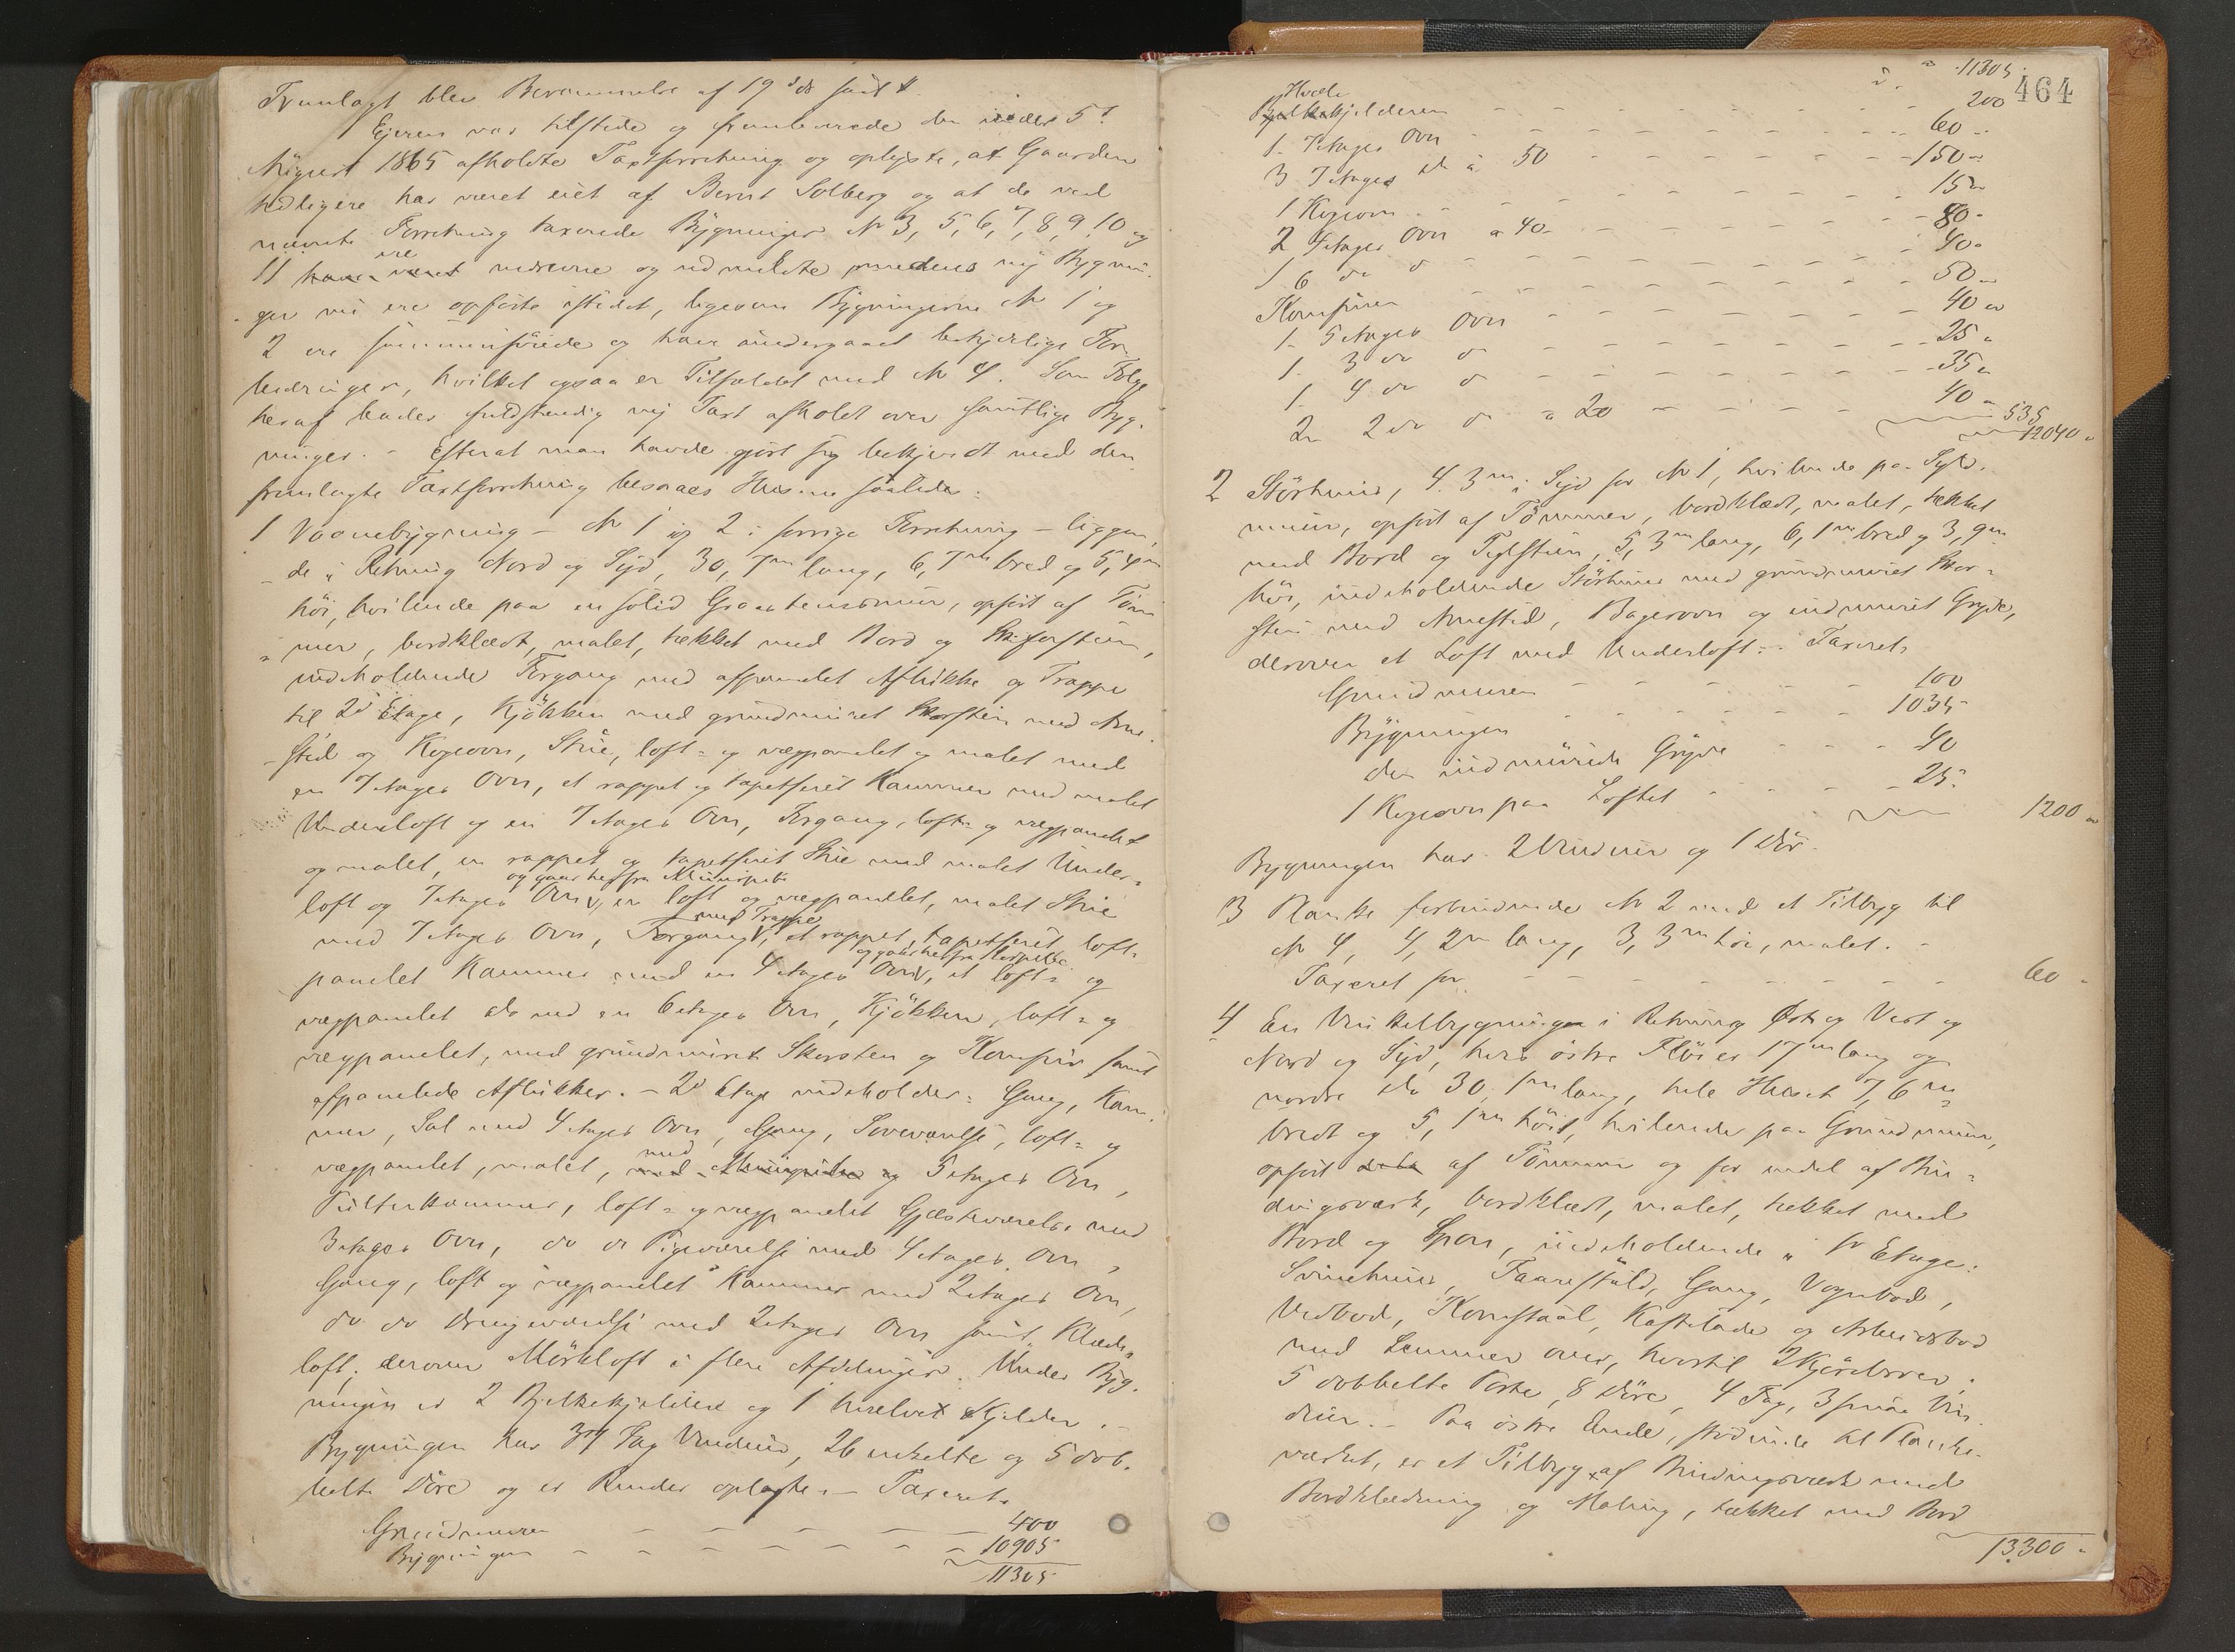 Fremlagt blev Berammelse af 19de
Ejeren var tilstede og fremlagde den 5t
August 1865 afholdte Taxtforretning og oplyste, at Gaarden
tidligere har været eiet af Bernt Solberg og at de ved
nævnte Forretning taxerede Bygninger No 3, 5, 6, 7, 8, 9, 10 og
11 ere nedrevne og udmeldte medens nye Bygnin-
ger nu ere opførte istedet, ligesom Bygningerne No 1 og
2 ere sammenføiede og have undergaaet betydelige For-
bedringer, hvilket ogsaa er Tilfældet med No 4. Som Følge
heraf bades fuldstændig ny Taxt afholdt over samtlige Byg-
ninger. - Efterat man havde gjort sig bekjendt med den
fremlagte Taxtforretning besaaes Husene saaledes:
1 Vaanebygning - No 1 og 2 i forrige Forretning - liggen-
de i Retning Nord og Syd, 30,7m lang, 6,7m bred og 5,4m
høi, hvilende paa en solid Graastensmur, opført af Tøm-
mer, bordklædt, malet, tækket med Bord og Skifersteen,
indeholdende Forgang med afpanelet Aflukke og Trappe
til 2d Etage, Kjøkken med grundmuret Skorsten med Arne-
sted og Kogeovn, Stue, loft- og vægpanelet og malet med
en 7 Etages Ovn, et rappet og tapetseret Kammer med malet
Underloft og en 7 Etages Ovn, Forgang, loft- og vægpanelet
og malet, en rappet og tapetseret Stue med malet Under-
loft og 7 Etages Ovn, en loft og vægpanelet, malet Stue
med 7 Etages Ovn, Forgang med Trappe, et rappet, tapetseret loft-
panelet Kammer med en 4 Etages Ovn, et loft- og
vægpanelet do med en 6 etages Ovn, Kjøkken, loft- og
vægpanelet, med grundmuret Skorsten og Komfur samt
afpanelede Aflukker. - 2d Etage indeholder: Gang, Kam-
mer, Sal med 4 Etages Ovn, Gang, Soveværelse, loft- og
vægpanelet, malet, med 5 etages Ovn,
Pulterkammer, loft- og vægpanelet Gjæsteværelse med
3 etages Ovn, do do Pigeværelse med 4 etages Ovn,
Gang, loft og vægpanelet Kammer med 2 etages Ovn,
do do Drengeværelse med 2 etages Ovn samt Klæde-
loft, derover Mørkloft i flere Afdelinger. Under Byg-
ningen er 2 Bjelkekjeldere og 1 hvælvet Kjelder. -
Bygningen har 37 Fag Vinduer, 26 enkelte og 5 dob-
belte Døre og er Runder oplagte. - Taxeret
Grundmuren - - - - - - 400
Bygningen - - - - - - - 10905
11305
464
11305
Hvælvkjelderen - - - - - 200
1. 7 etages Ovn - - - - - 60
3 7 etages do à 50 - - - - 150
1 Kogeovn - - - - - 15
2 4 etages Ovn à 40 - - - - 80
1 6 do do - - - - - 40
Komfuren - - - - - 50
1. 5 etages Ovn - - - - - 40
1. 3 do do - - - - - 25
1. 4 do do - - - - - 35
2 2 do do à 20 - - - - 40
535
12040
2 Størhuus, 4.3m i Syd for No 1, hvilende paa Syld-
muur, opført af Tømmer, bordklædt, malet, tækket
med Bord og Teglsteen, 5,3m lang, 6,1m bred og 3,9m
høi, indeholdende Størhuus med grundmuret Skor-
steen med Arnested, Bagerovn og indmuret Gryde,
derover et Loft med Underloft. - Taxeret
Grundmuren - - - - - 100
Bygningen - - - - - 1035
den indmurede Gryde - - - 40
1 Kogeovn paa Loftet - - - - 25
1200
Bygningen har 2 Vinduer og 1 Dør.
3 Planke forbindende No 2 med et Tilbyg til
No 4, 4,2m lang, 3,3m høi, malet. -
Taxeret for - - - - - - 60
4 En Vinkelbygning i Retning Øst og Vest og
Nord og Syd, hvis østre Fløi er 17m lang og
nordre do 30,1m lang, hele Huset 7,6m
bredt og 5,1m høit, hvilende paa Grundmuur,
opført af Tømmer og for endel af Bin-
dingsværk, bordklædt, malet, tækket med
Bord og Spon, indeholdende i 1r Etage:
Svinehuus, Faarefjøs, Gang, Vognbod,
Vedbod, Kornstaal, Kastelade og Arbeidsbod
med Lemmer over, hvortil 2 Kjørebroer,
5 dobbelte Porte, 8 Døre, 4 Fag, 3 smaa Vin-
duer. - Paa østre Ende, stødende til Planke-
værket, er et Tilbyg af Bindingsværk med
Bordklædning og Maling, tækket med Bord
13300